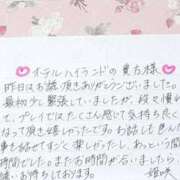 オテルハイランドの貴方様
昨日はお誘い頂きありがとうございました。
最初少し緊張していましたが、段々慣れ
て、プレイではたくさん感じて気持ち良く
なって頂き嬉しかったです。お話しも色んな
事を話せてすごく楽しかったし、あっという間
時間でした。またお時間が合いましたら、
誘いお待ちしております。